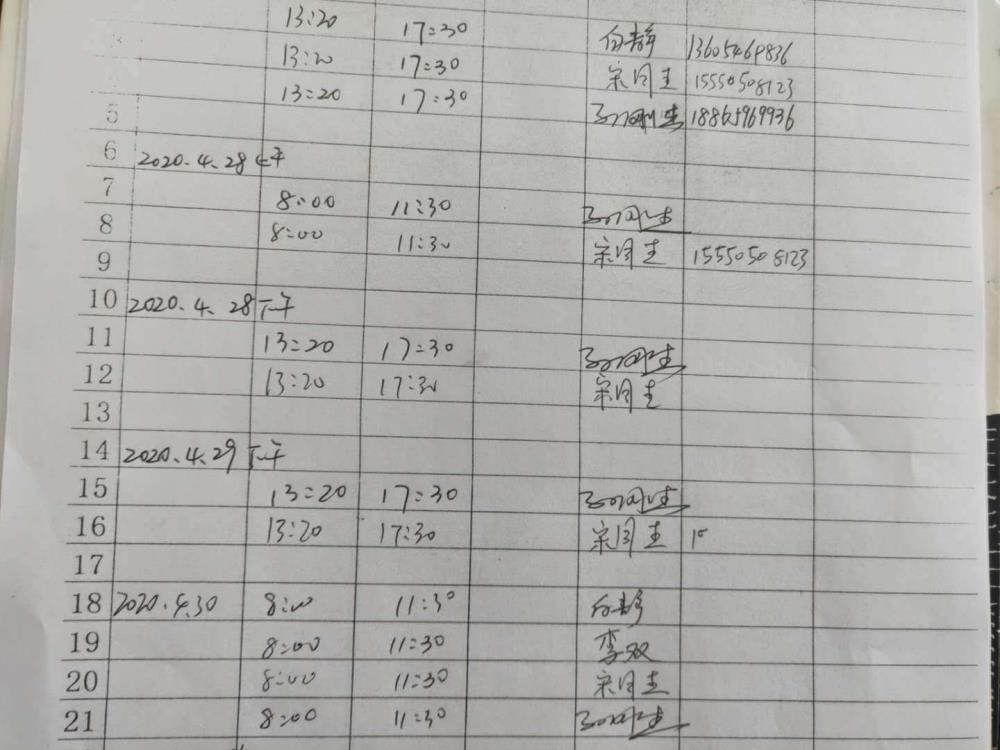 13:20 17:30 白静 13605469836
13:20 17:30 宋同圭 15550508123
5 13:20 17:30 18865969936
6 2020.4.28 上午
7 8:00 11:30
8 8:00 11:30 宋同圭 15550508123
9
10 2020.4.28 下午
11 13:20 17:30
12 13:20 17:30 宋同圭
13
14 2020.4.29 下午
15 13:20 17:30
16 13:20 17:30 宋同圭 15
17
18 2020.4.30 8:00 11:30 白静
19 8:00 11:30 李双
20 8:00 11:30 宋同圭
21 8:00 11:30